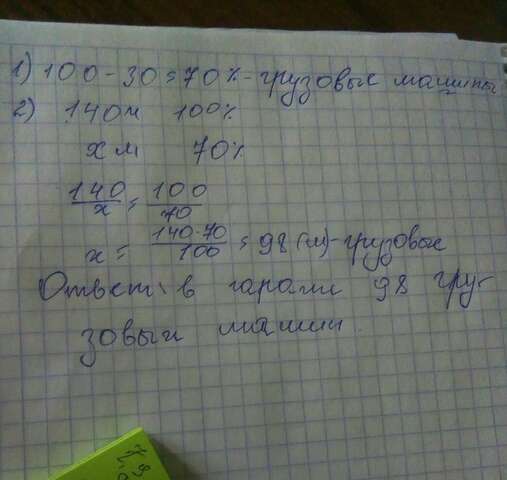 1) 100 - 30 = 70% - грузовые машины
2) 140м 100%
х м 70%
140/х = 100/70
х = 140·70/100 = 98 (м) - грузовые
Ответ: в гараже 98 гру-
зовых машин.